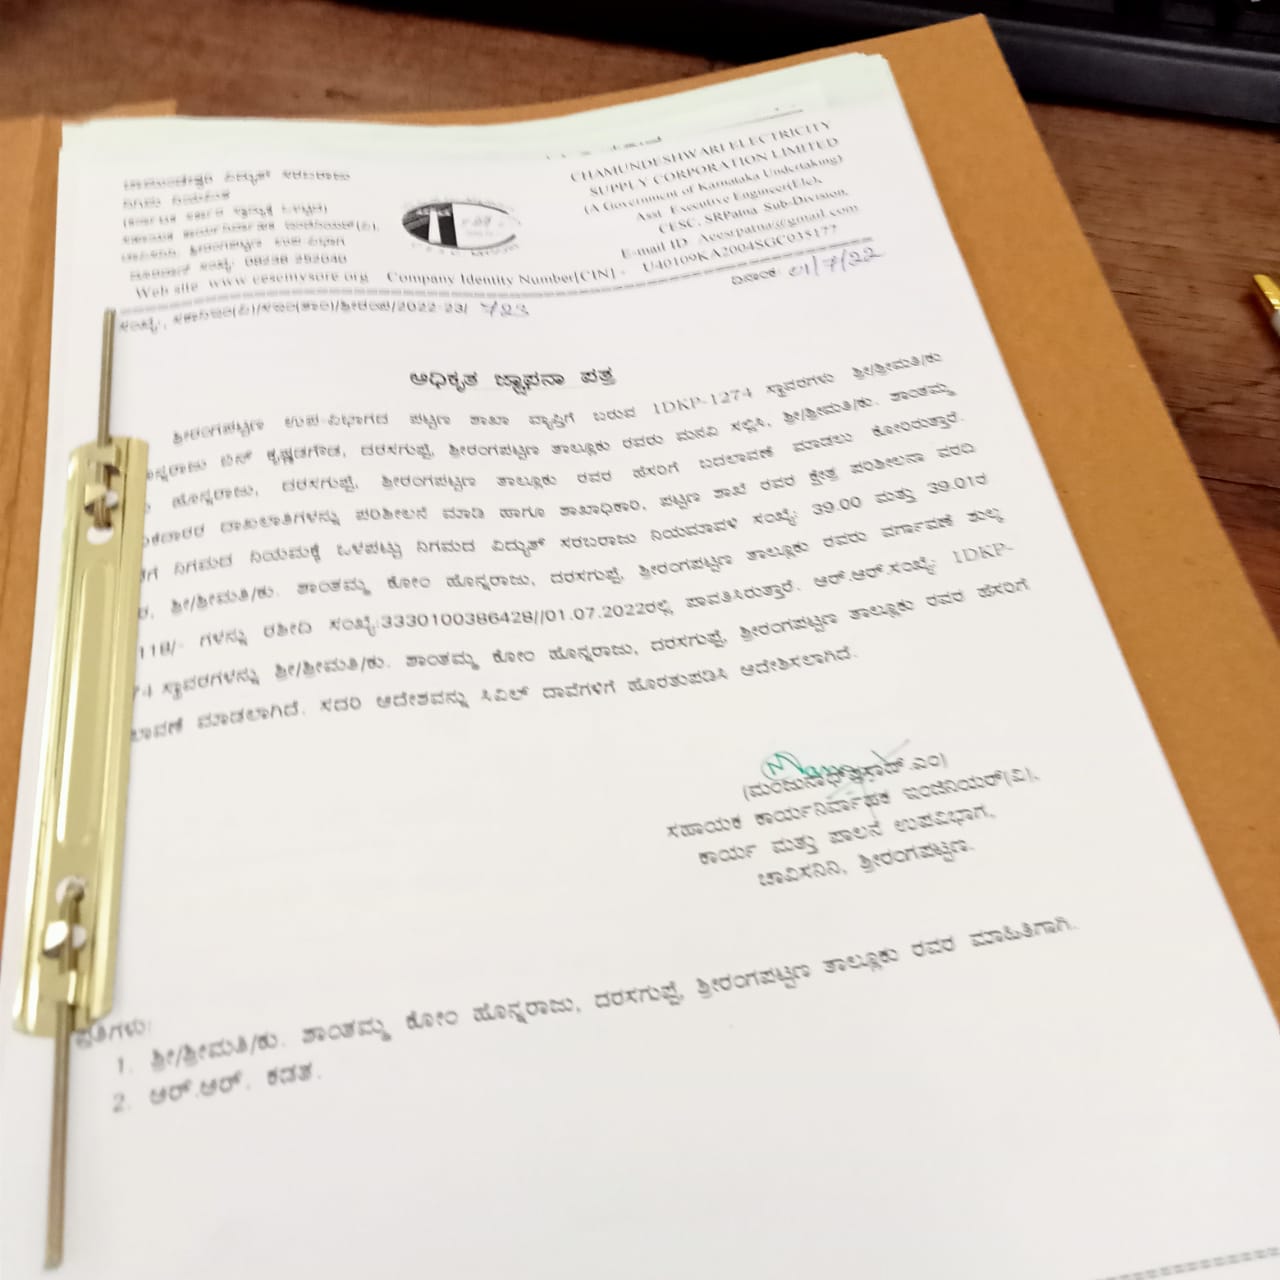 ಚಾಮುಂಡೇಶ್ವರಿ ವಿದ್ಯುತ್ ಸರಬರಾಜು
ನಿಗಮ ನಿಯಮಿತ
(ಕರ್ನಾಟಕ ಸರ್ಕಾರದ ಸ್ವಾಮ್ಯಕ್ಕೆ ಒಳಪಟ್ಟಿದೆ)
ಸಹಾಯಕ ಕಾರ್ಯನಿರ್ವಾಹಕ ಇಂಜಿನಿಯರ್(ವಿ),
ಚಾವಿಸನಿನಿ, ಶ್ರೀರಂಗಪಟ್ಟಣ ಉಪ ವಿಭಾಗ
ದೂರವಾಣಿ ಸಂಖ್ಯೆ: 08236 252040
CHAMUNDESHWARI ELECTRICITY
SUPPLY CORPORATION LIMITED
(A Government of Karnataka Undertaking)
Asst Executive Engineer(Ele),
CESC, SRPatna Sub-Division,
E-mail ID Aeesrpatna@gmail.com
Web site www cescmysore.org Company Identity Number[CIN] - U40109KA2004SGC035177
ಸಂಖ್ಯೆ:, ಸಕಾನಿಇಂ(ವಿ)/ಸಇಂ(ತಾಂ)/ಶ್ರೀರಂಪ/2022-23/ 723
ದಿನಾಂಕ: 01/7/22
ಅಧಿಕೃತ ಜ್ಞಾಪನಾ ಪತ್ರ
ಶ್ರೀರಂಗಪಟ್ಟಣ ಉಪ-ವಿಭಾಗದ ಪಟ್ಟಣ ಶಾಖಾ ವ್ಯಾಪ್ತಿಗೆ ಬರುವ 1DKP-1274 ಸ್ಥಾವರಗಳು ಶ್ರೀ/ಶ್ರೀಮತಿ/ಕು
ಹೊನ್ನರಾಜು ಬಿನ್ ಕೃಷ್ಣಡಗೌಡ, ದರಸಗುಪ್ಪೆ, ಶ್ರೀರಂಗಪಟ್ಟಣ ತಾಲ್ಲೂಕು ರವರು ಮನವಿ ಸಲ್ಲಿಸಿ, ಶ್ರೀ/ಶ್ರೀಮತಿ/ಕು. ಶಾಂತಮ್ಮ
ಹೊನ್ನರಾಜು, ದರಸಗುಪ್ಪೆ, ಶ್ರೀರಂಗಪಟ್ಟಣ ತಾಲ್ಲೂಕು ರವರ ಹೆಸರಿಗೆ ಬದಲಾವಣೆ ಮಾಡಲು ಕೋರಿರುತ್ತಾರೆ.
ದಾಖಲಾತಿಗಳನ್ನು ಪರಿಶೀಲನೆ ಮಾಡಿ ಹಾಗೂ ಶಾಖಾಧಿಕಾರಿ, ಪಟ್ಟಣ ಶಾಖೆ ರವರ ಕ್ಷೇತ್ರ ಪರಿಶೀಲನಾ ವರದಿ
ನಿಗಮದ ನಿಯಮಕ್ಕೆ ಒಳಪಟ್ಟು ನಿಗಮದ ವಿದ್ಯುತ್ ಸರಬರಾಜು ನಿಯಮಾವಳಿ ಸಂಖ್ಯೆ: 39.00 ಮತ್ತು 39.01ರ
ಶ್ರೀ/ಶ್ರೀಮತಿ/ಕು. ಶಾಂತಮ್ಮ ಕೋಂ ಹೊನ್ನರಾಜು, ದರಸಗುಪ್ಪೆ, ಶ್ರೀರಂಗಪಟ್ಟಣ ತಾಲ್ಲೂಕು ರವರು ವರ್ಗಾವಣೆ ಶುಲ್ಕ
118/- ಗಳನ್ನು ರಶೀದಿ ಸಂಖ್ಯೆ:3330100386428//01.07.2022ರಲ್ಲಿ ಪಾವತಿಸಿರುತ್ತಾರೆ. ಆರ್.ಆರ್.ಸಂಖ್ಯೆ: 1DKP-
74 ಸ್ಥಾವರಗಳನ್ನು ಶ್ರೀ/ಶ್ರೀಮತಿ/ಕು. ಶಾಂತಮ್ಮ ಕೋಂ ಹೊನ್ನರಾಜು, ದರಸಗುಪ್ಪೆ, ಶ್ರೀರಂಗಪಟ್ಟಣ ತಾಲ್ಲೂಕು ರವರ ಹೆಸರಿಗೆ
ಲಾವಣೆ ಮಾಡಲಾಗಿದೆ. ಸದರಿ ಆದೇಶವನ್ನು ಸಿವಿಲ್ ದಾವೆಗಳಿಗೆ ಹೊರತುಪಡಿಸಿ ಆದೇಶಿಸಲಾಗಿದೆ.
(ಮಂಜುನಾಥ್‌ಪ್ರಸಾದ್.ಎಂ)
ಸಹಾಯಕ ಕಾರ್ಯನಿರ್ವಾಹಕ ಇಂಜಿನಿಯರ್(ವಿ),
ಕಾರ್ಯ ಮತ್ತು ಪಾಲನೆ ಉಪವಿಭಾಗ,
ಚಾವಿಸನಿನಿ, ಶ್ರೀರಂಗಪಟ್ಟಣ.
ಪ್ರತಿಗಳು:
1. ಶ್ರೀ/ಶ್ರೀಮತಿ/ಕು. ಶಾಂತಮ್ಮ ಕೋಂ ಹೊನ್ನರಾಜು, ದರಸಗುಪ್ಪೆ, ಶ್ರೀರಂಗಪಟ್ಟಣ ತಾಲ್ಲೂಕು ರವರ ಮಾಹಿತಿಗಾಗಿ.
2. ಆರ್.ಆರ್. ಕಡತ.